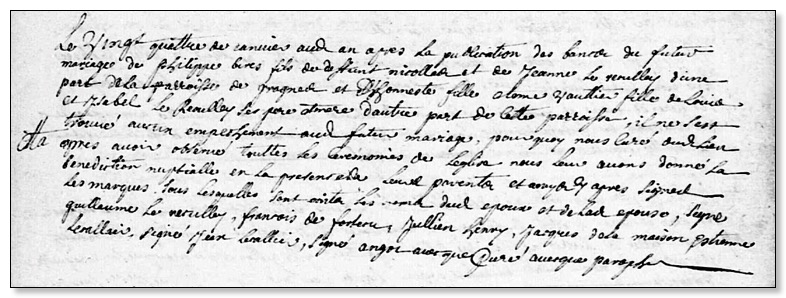 Le Vingt quattre de Janvier aud an apres La publication des bancs du futur
mariage de philippe bires fils de deffunt nicollas et de Jeanne Le reculley d'une
part de la parroisse de et d'honneste fille vaultier fille de Louis
et Isabel Le Reculley ses pere et mere d'autre part de cette parroisse, il ne s'est
trouvé aucun empeschement aud futur mariage, pourquoy nous Curé dud Lieu
apres avoir observé touttes les ceremonies de Leglise nous leur avons donné La
benediction nuptialle en La presence de Leurs parents et amys cy apres Signés
Les marques sous lesquelles sont ecrits les noms dud epoux et de lad epouse, Signe
guillaume Le reculley, francois de , Jullien henry, Jacques de la maison
Lerallier, Signé Jean Lerallier, Signé angot avecque Curé avecque paraphe